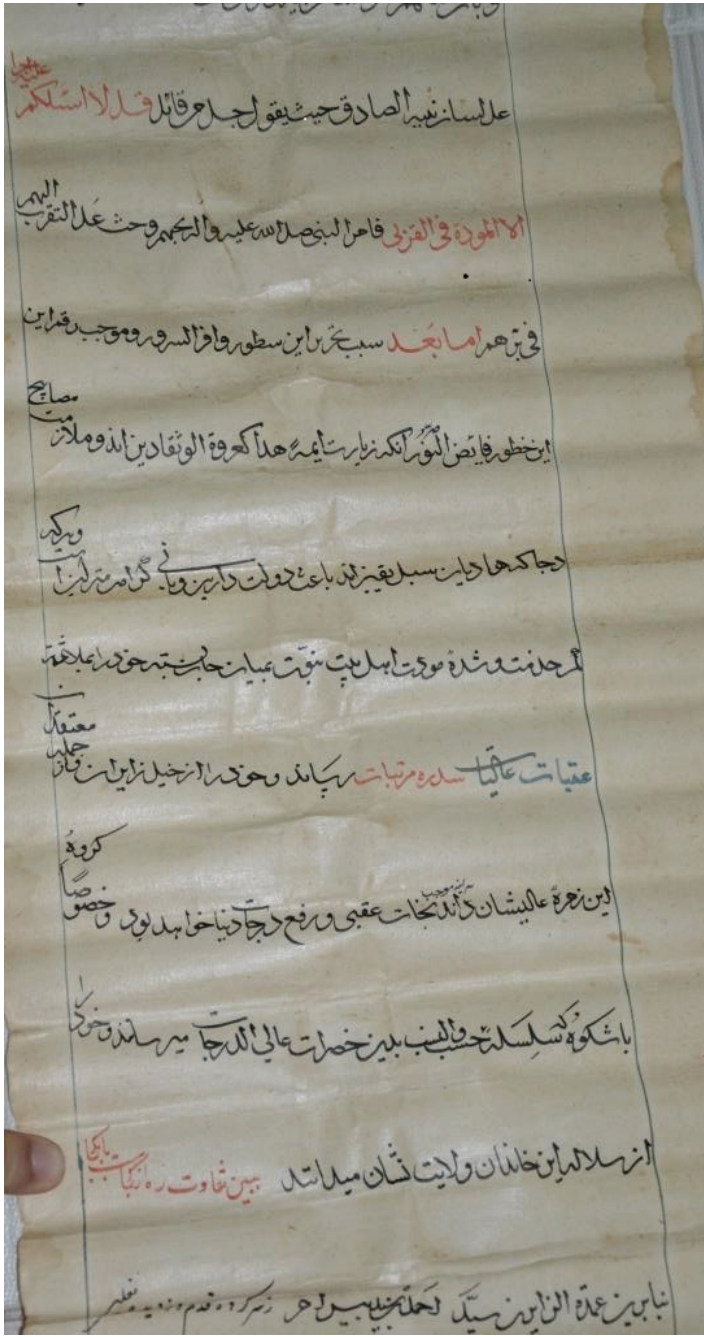 علی لسان نبیه الصادق حیث یقول جل من قائل قل لا اسئلکم علیه اجرا
الا المودة فی القربی فامر النبی صلی الله علیه و اله بحبهم وحث علی التقرب الیهم
فی برهم اما بعد سبب تحریر این سطور وافر السرور و موجب رقم این
این خطور فایض النور آنکه زیارت ایمهٔ هدا که عروة الوثقا دین اند و ملازمت مصابیح
دجا که هادیان سبل یقین اند باعث دولت دارین و بانی گرامت منزلین است و هر که
کمر خدمت و شدهٔ مودت اهل بیت نبوت بمیان جان بسته خود را بملاثمة
عتبات عالیات سدره مرتبات رساند و خود را از خیل زایران و از جمله معتقدان
این زمرهٔ عالیشان داند موجب نجات عقبی و رفع درجات دنیا خواهد بود و خصوصاً گروه
با شکوه که سلسلهٔ حسب والنسب بدین حضرات عالی الدرجات میرسانند و خود را
از سلاله این خاندان ولایت نشان میدانند ببین تفاوت ره از کجاست تا بکجا
بنابرین عمدة الزایرین سید احمد